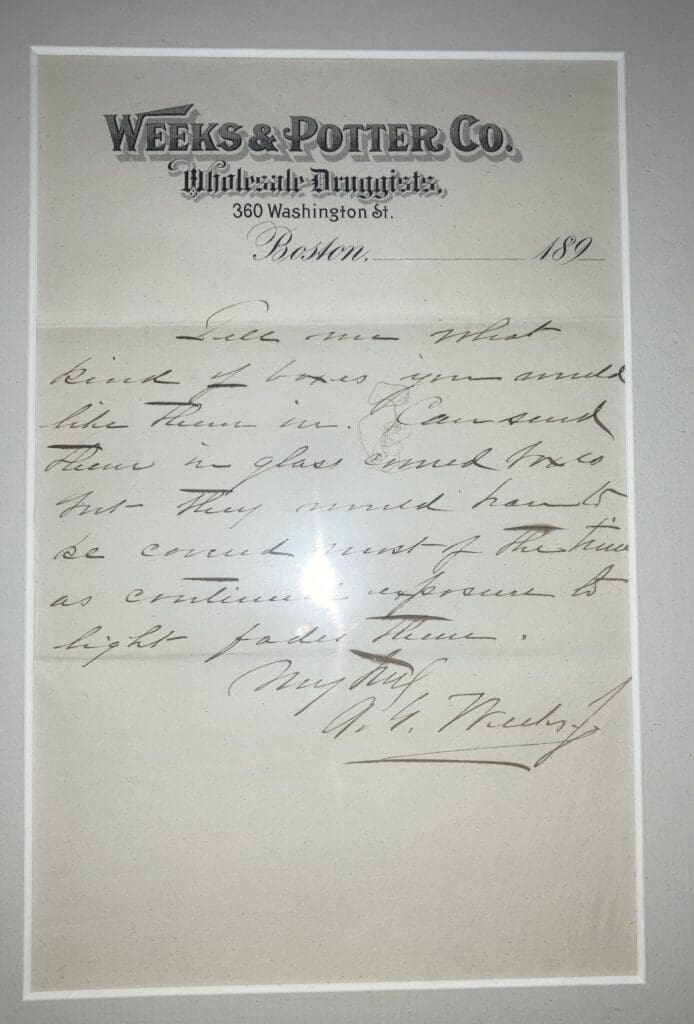 WEEKS & POTTER CO.
Wholesale Druggists,
360 Washington St.
Boston, 189
Tell me what
kind of boxes you would
like them in. Can send
them in glass covered boxes
but they would have to
be covered most of the time
as continued exposure to
light fades them.
A. G. Weeks Jr